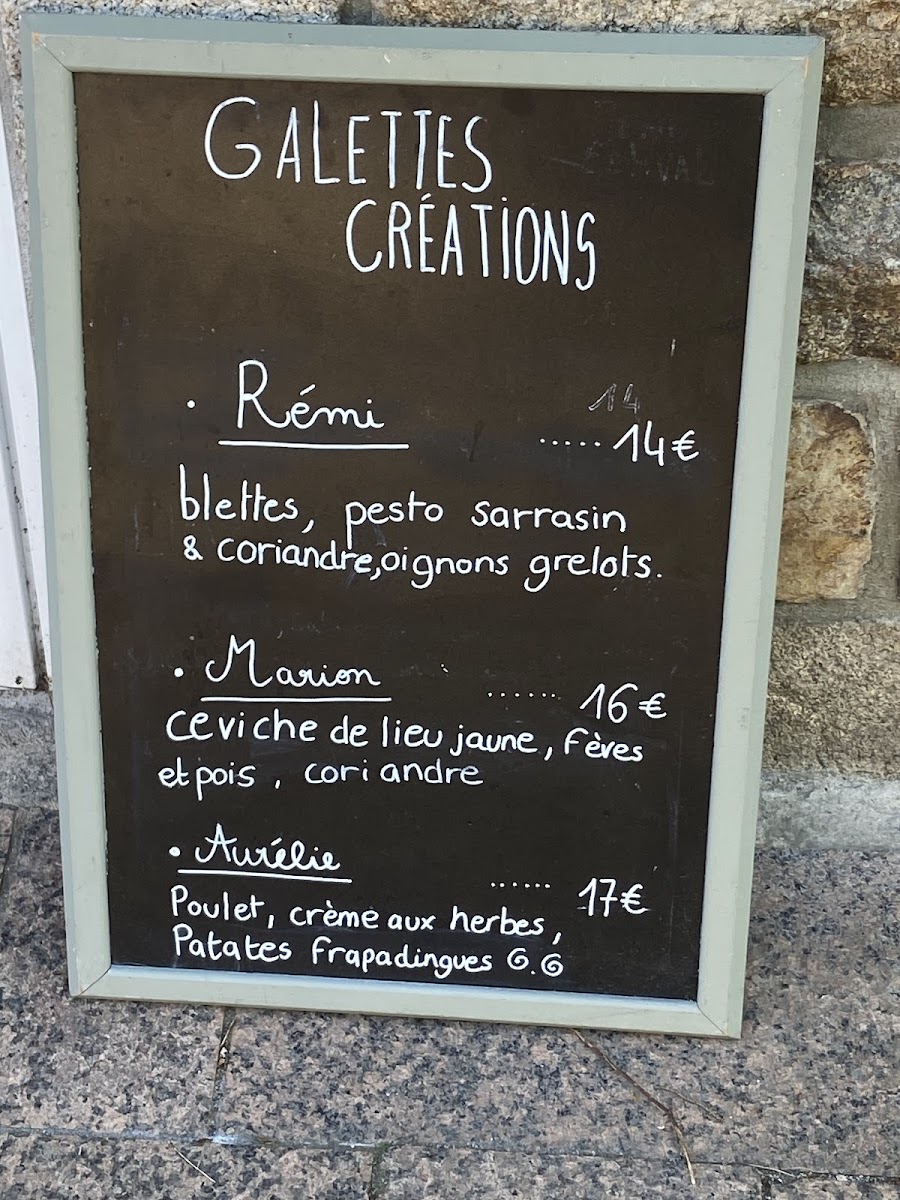 GALETTES
CRÉATIONS
· Rémi
14
..... 14€
blettes, pesto sarrasin
& coriandre, oignons grelots.
· Marion
....... 16€
ceviche de lieu jaune, Fèves
et pois, coriandre
· Aurélie
...... 17€
Poulet, crème aux herbes,
Patates Frapadingues @.@